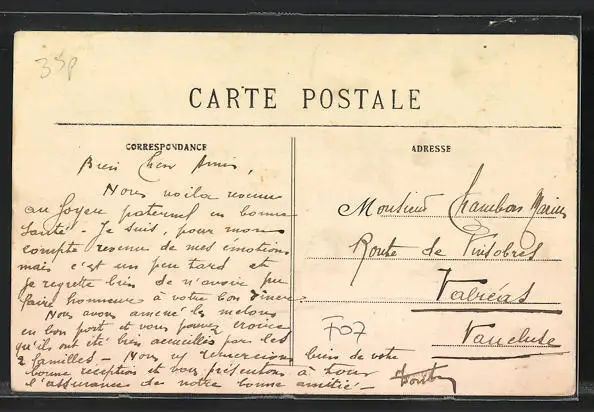 33p
CARTE POSTALE
CORRESPONDANCE
Bien Chers Amis,
Nous voila revenu
au foyer paternel en bonne
Santé. Je suis, pour mon
compte revenu de mes émotions
mais c'est un peu tard et
je regrette bien de n'avoir pu
faire honneur à votre bon diner
Nous avons amené les melons
en bon port et vous pouvez croire
qu'ils ont été bien accueillis par les
2 familles - Nous vs remercions bien de votre
bonne réception et vous présentons à tous
l'assurance de notre bonne amitié -
ADRESSE
Monsieur Chambon Marius
Route de Vinsobres
Valréas
Vaucluse
F07